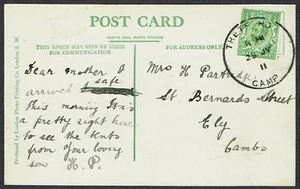 POST CARD
THIS SPACE MAY NOW BE USED FOR COMMUNICATION
FOR ADDRESS ONLY.
Dear mother I
arrived safe
this morning It is
a pretty sight here
to see the tents
from your loving
son H.P.
Mrs H.
St Bernards Street
Ely
Cambs
CAMP
11